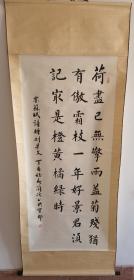 荷盡已無擎雨蓋菊殘猶
有傲霜枝一年好景君須
記㝡是橙黄橘緑時
宋蘇軾詩贈劉景文